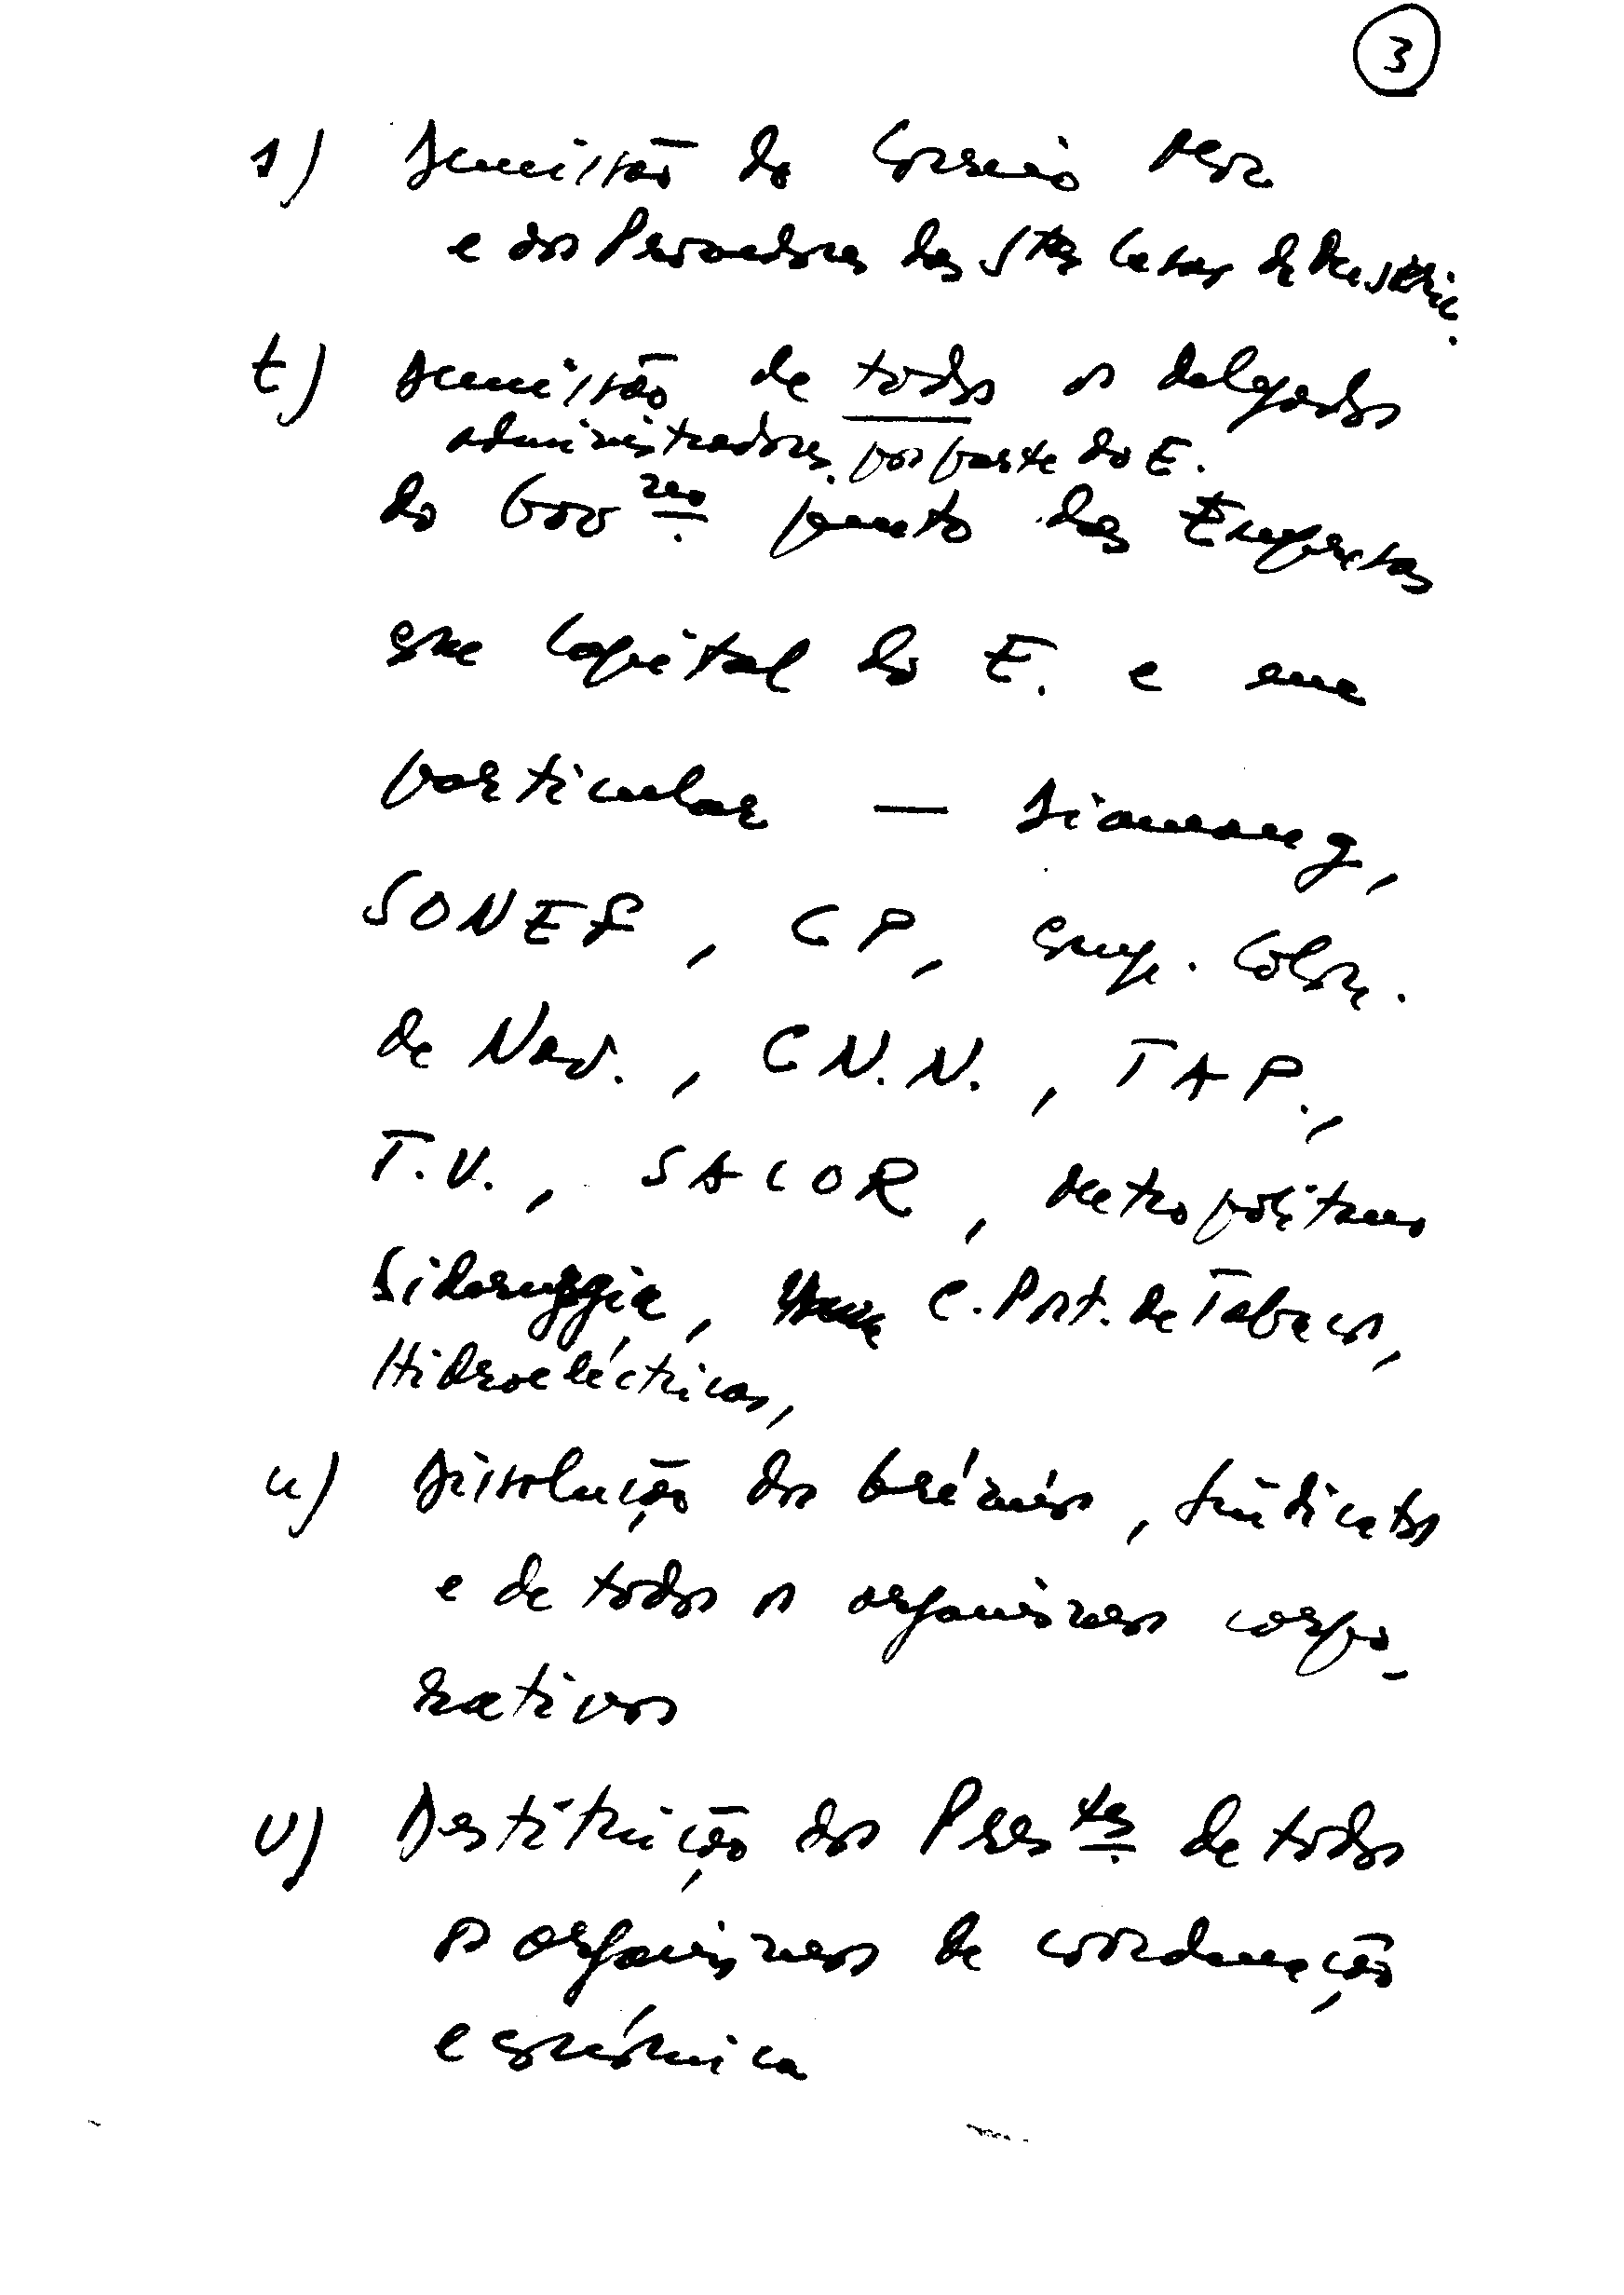 3
s) Demissão do Correio Mor
e dos Provedores das Stas Casas de Misericórdia.
t) Demissão de todos os delegados
administradores por parte do E.
do Govrno. junto das Empresas
com Capital do E. e em
particular — Diamang,
SONEF, CP, Comp. Colon.
de Nav., C N. N., TAP.,
T.V., SACOR, Metropolitano
Siderurgia, C. Port. de Tabacos,
Hidroeléctricas,
u) Dissolução dos Grémios, Sindicatos
e de todos os organismos corpo-
rativos
v) Destituição dos Pres.tes de todos
os organismos de coordenação
económica